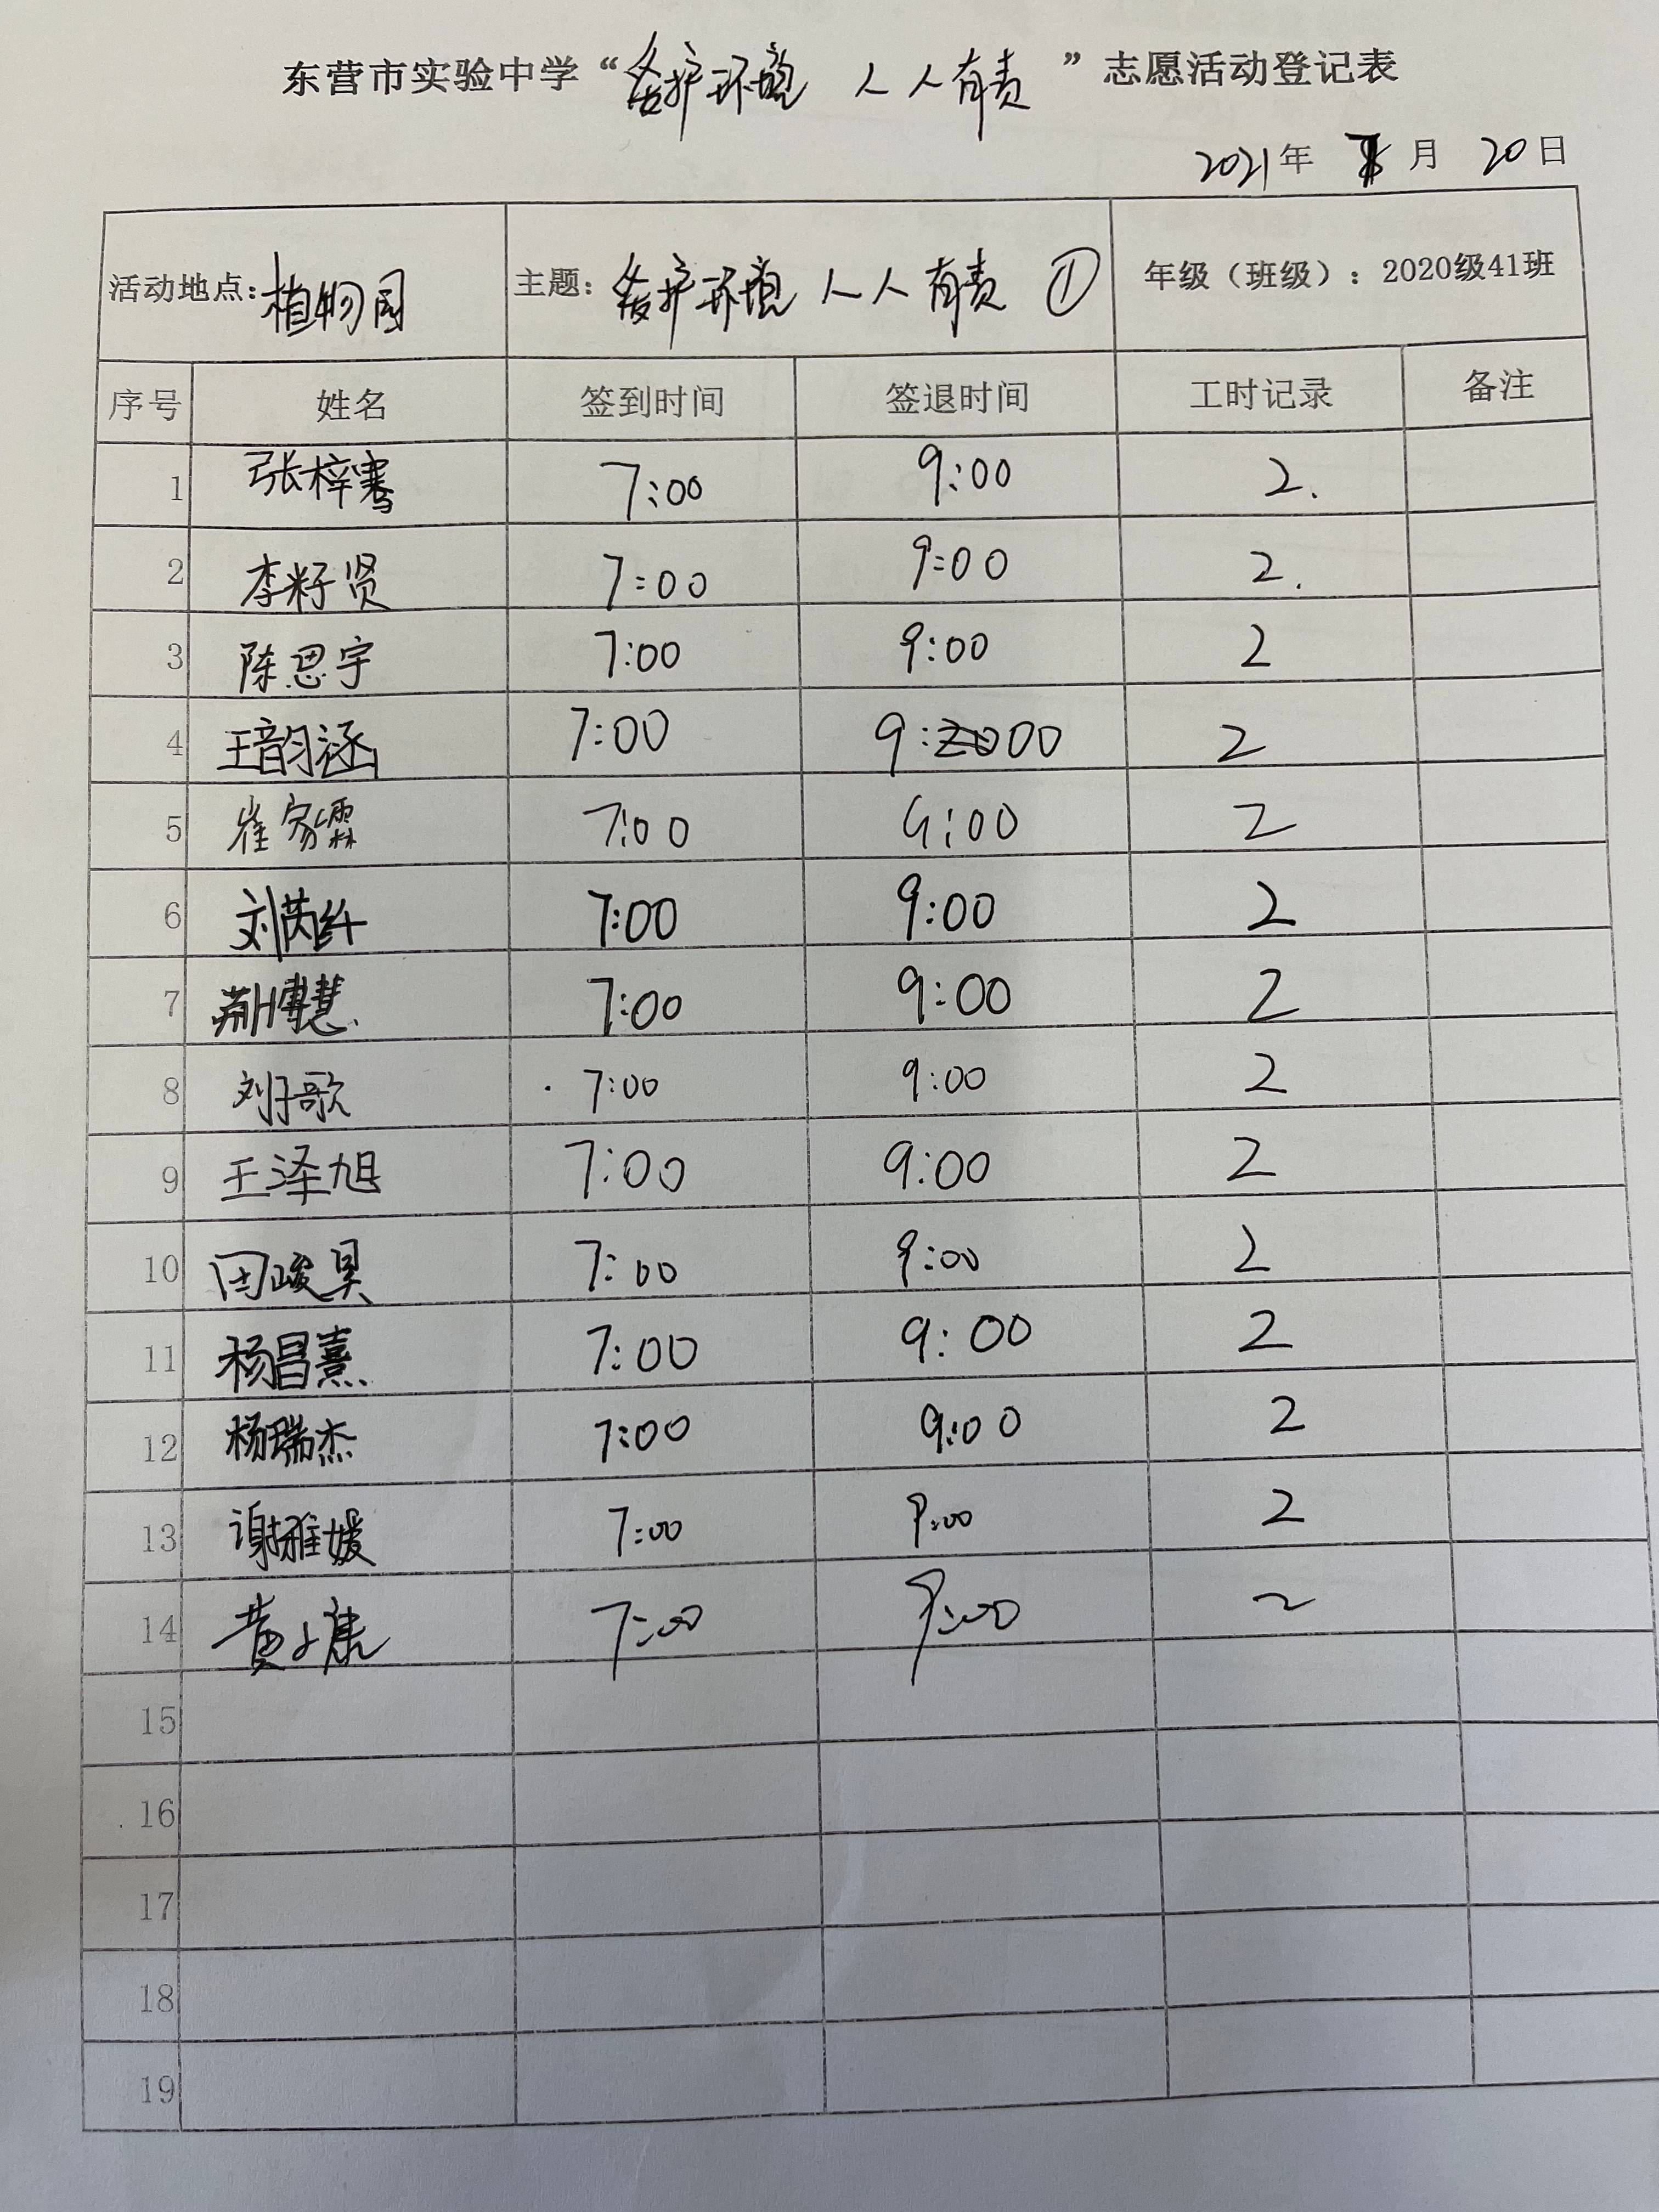 东营市实验中学“爱护环境 人人有责”志愿活动登记表
2021年 月 20日
活动地点:植物园 主题:爱护环境 人人有责 ① 年级（班级）: 2020级41班
序号 姓名 签到时间 签退时间 工时记录 备注
1 张梓骞 7:00 9:00 2.
2 李籽贤 7:00 9:00 2.
3 陈思宇 7:00 9:00 2
4 王韵涵 7:00 9:00 2
5 崔家霖 7:00 9:00 2
6 刘芮纤 7:00 9:00 2
7 荆博慧 7:00 9:00 2
8 刘子歌 7:00 9:00 2
9 王泽旭 7:00 9:00 2
10 田峻昊 7:00 9:00 2
11 杨昌熹 7:00 9:00 2
12 杨瑞杰 7:00 9:00 2
13 谢雅媛 7:00 9:00 2
14 黄 7:00 9:00 2
15
16
17
18
19